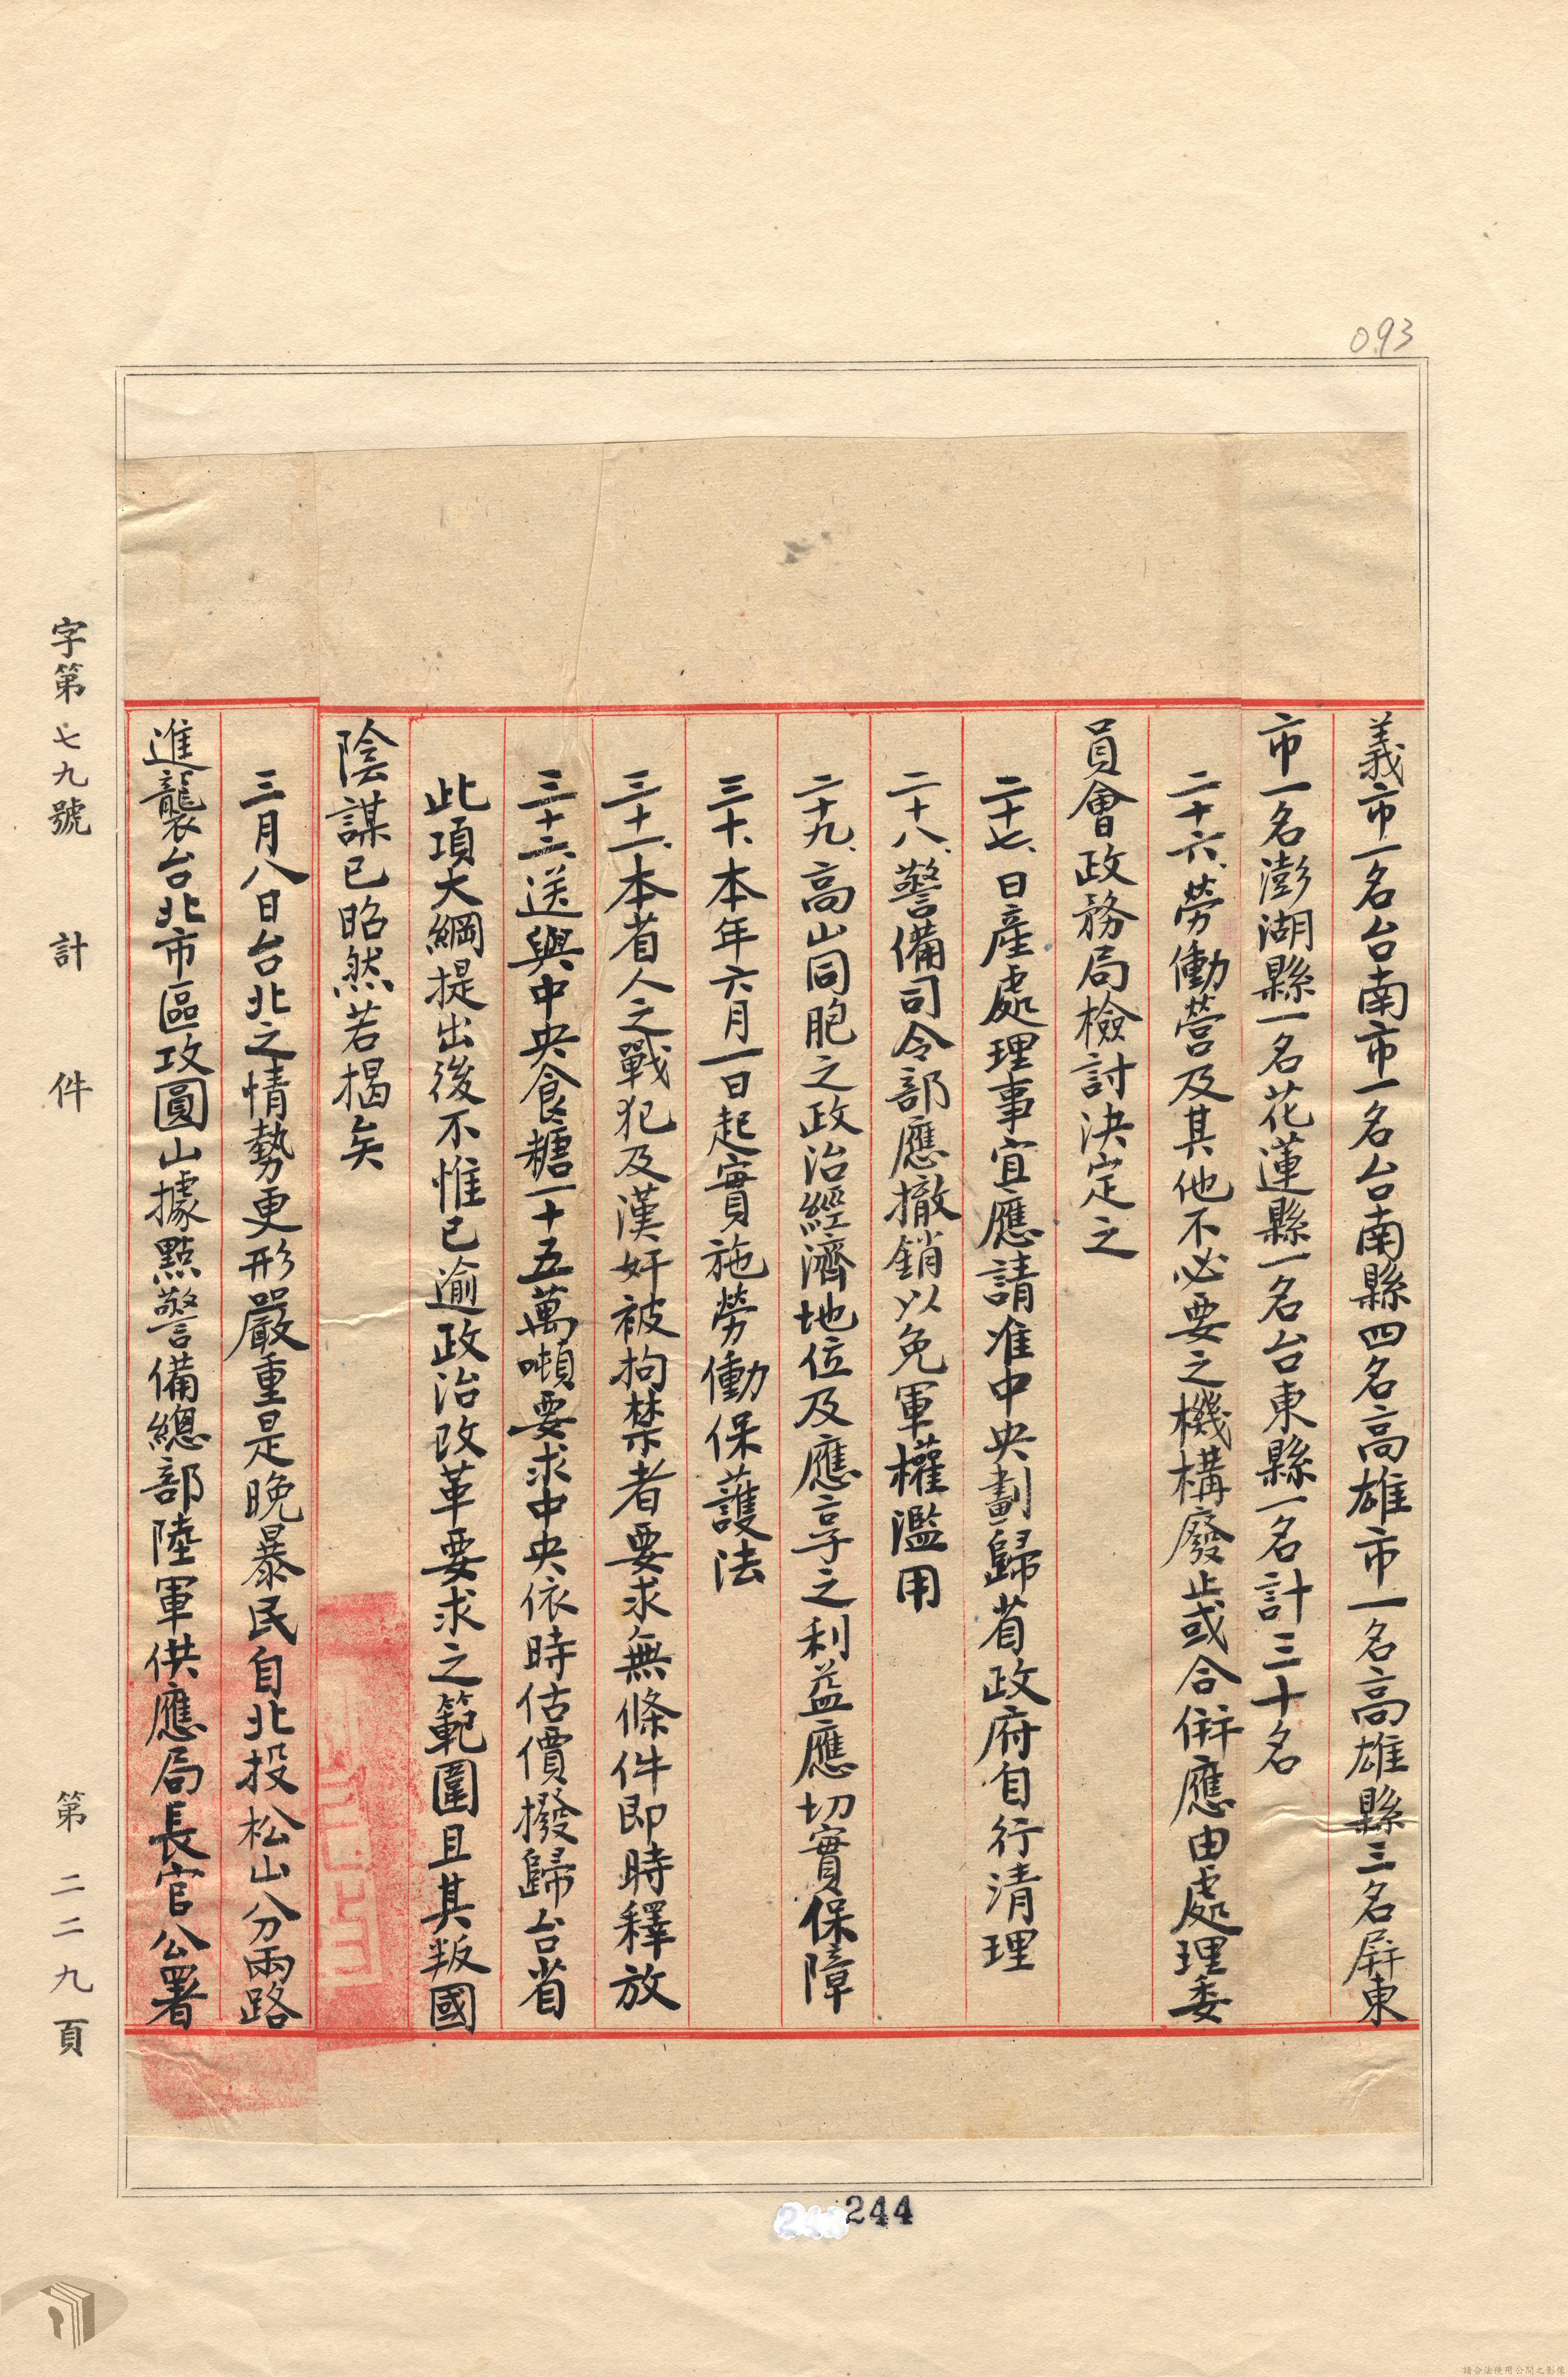 093
義市一名台南市一名台南縣四名高雄市一名高雄縣三名屏東
市一名澎湖縣一名花蓮縣一名台東縣一名計三十名
二十六、勞働營及其他不必要之機構廢止或合併應由處理委
員會政務局檢討決定之
二十七、日產處理事宜應請准中央劃歸省政府自行清理
二十八、警備司令部應撤銷以免軍權濫用
二十九、高山同胞之政治經濟地位及應享之利益應切實保障
三十、本年六月一日起實施勞働保護法
三十一、本省人之戰犯及漢奸被拘禁者要求無條件即時釋放
三十二、送與中央食糖一十五萬噸要求中央依時估價撥歸台省
此項大綱提出後不惟已逾政治改革要求之範圍且其叛國
陰謀已昭然若揭矣
三月八日台北之情勢更形嚴重是晚暴民自北投松山分兩路
進襲台北市區攻圓山據點警備總部陸軍供應局長官公署
字第七九號 計 件 第二二九頁
244
請合法使用公開之影像